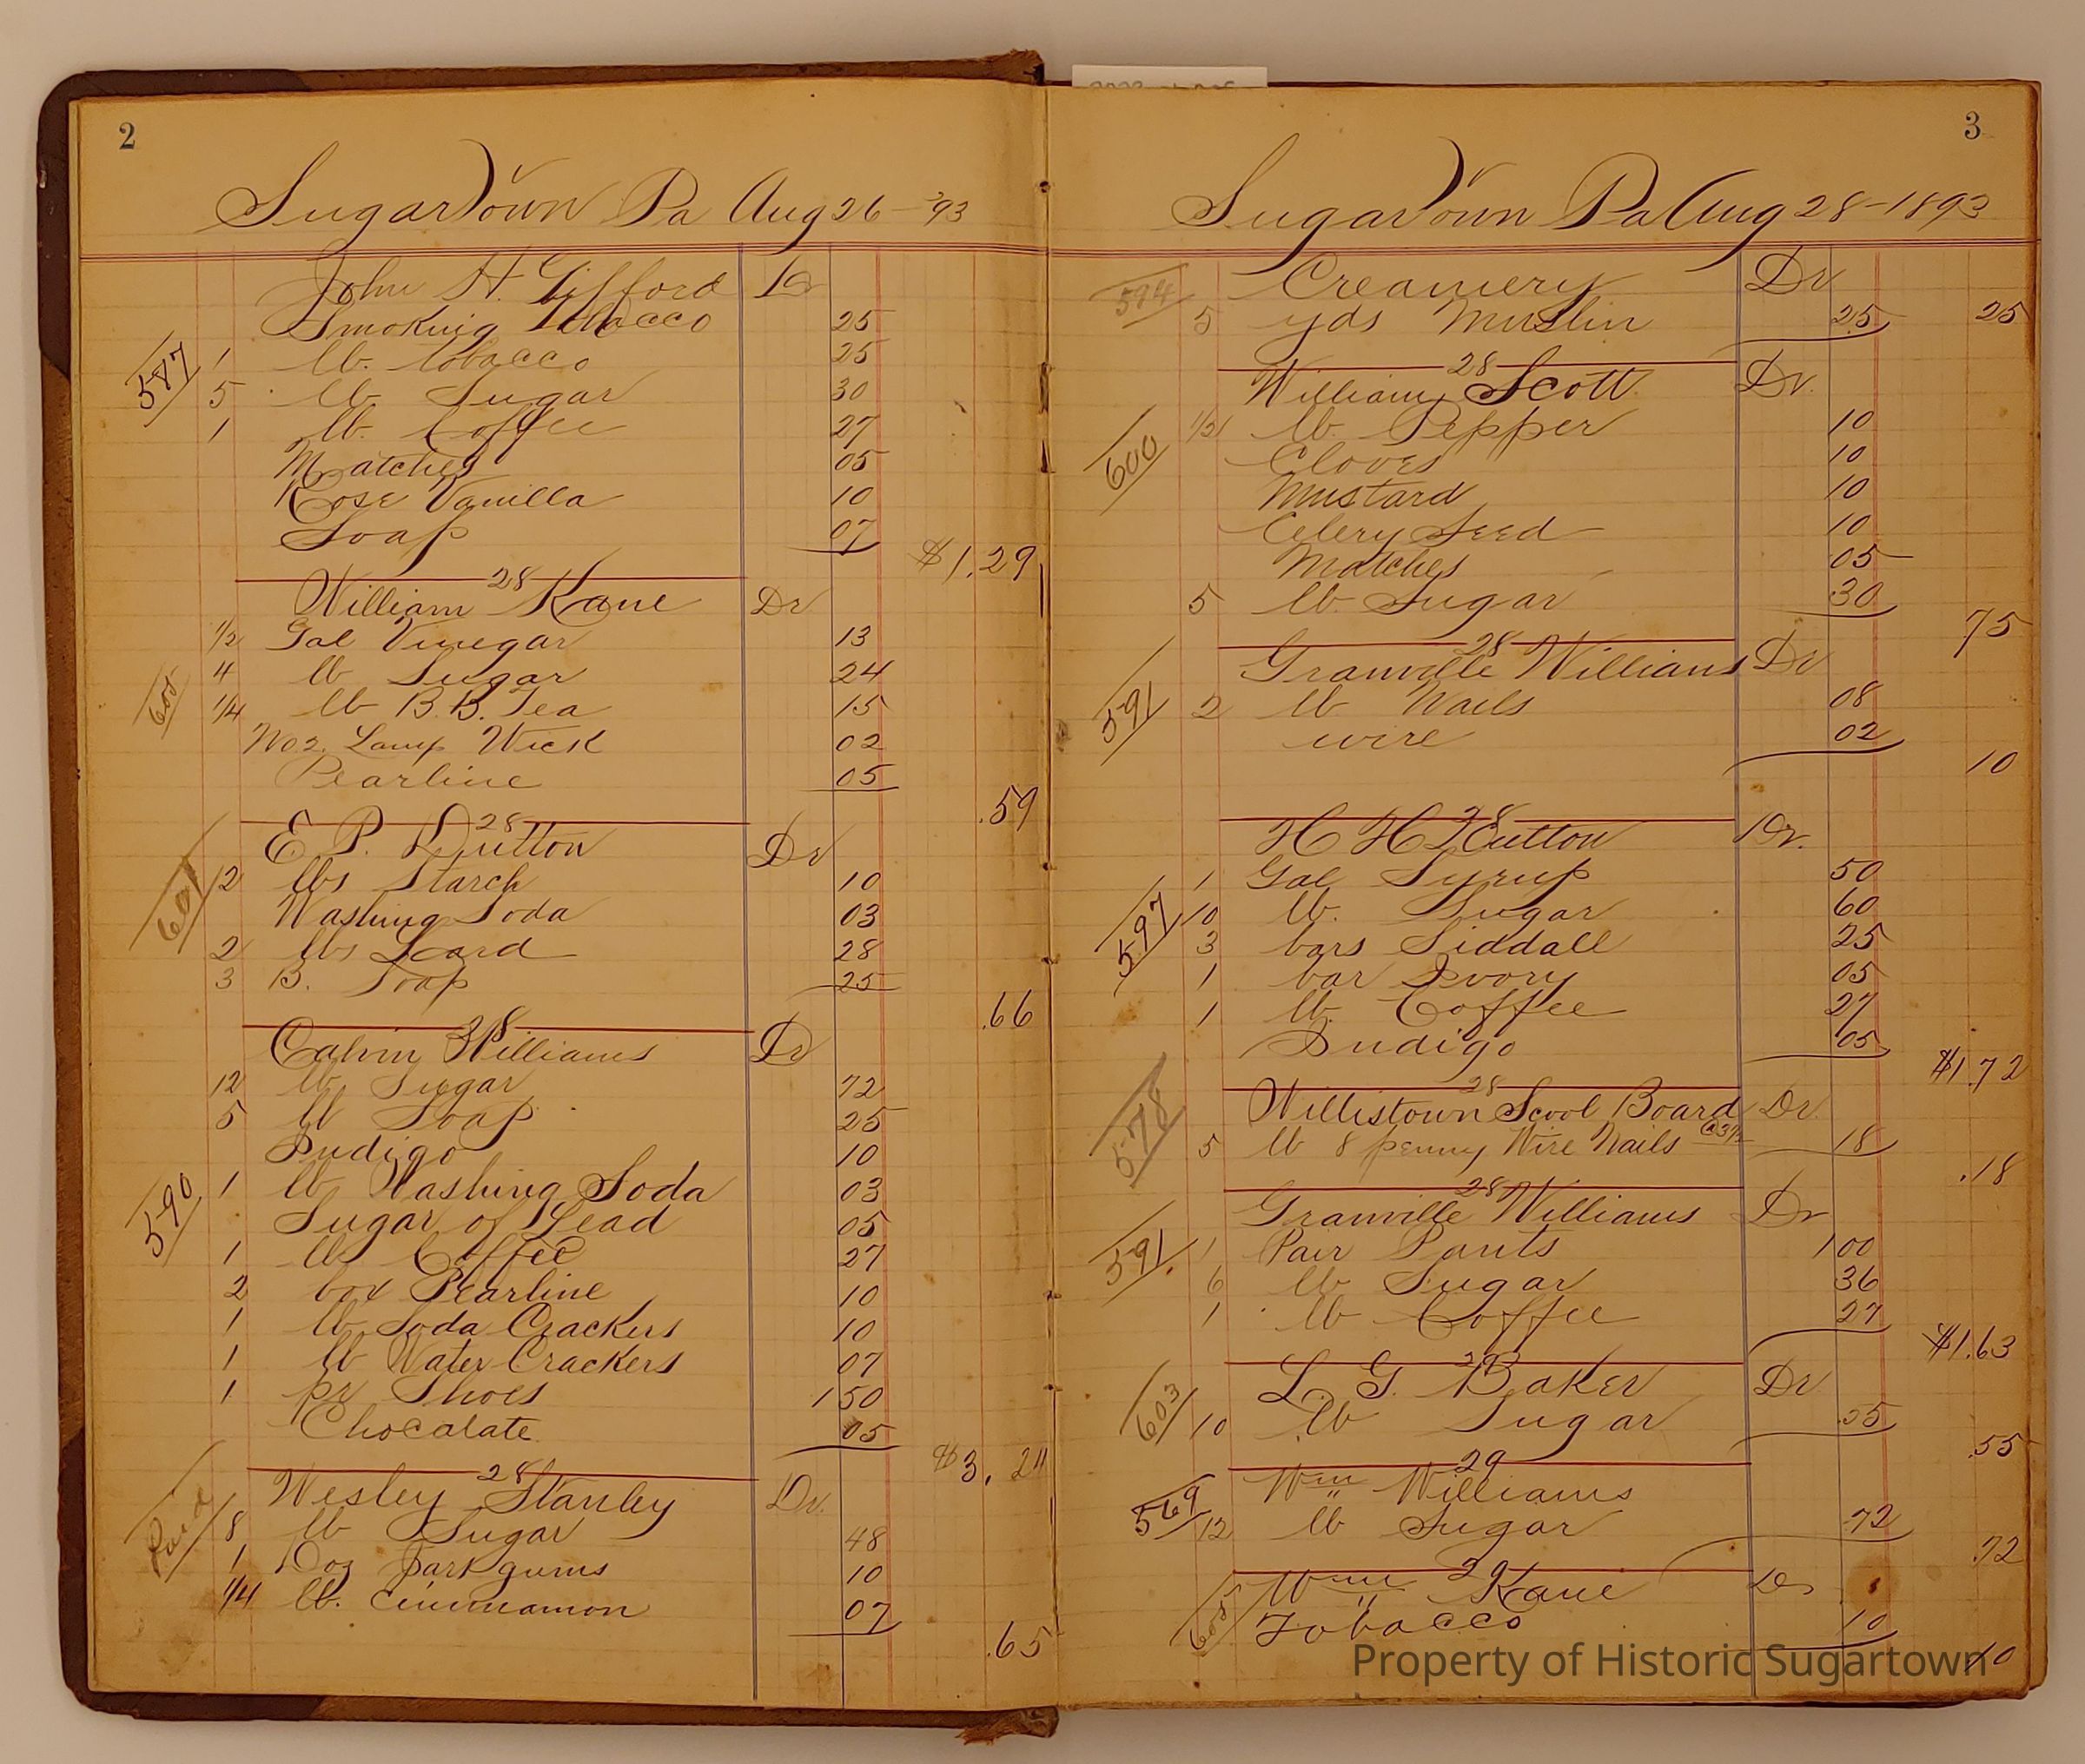 2
Sugartown Pa Aug 26 - '93
John H. Gifford Dr
Smoking Tobacco 25
587 1 lb. tobacco 25
5 lb Sugar 30
1 lb. Coffee 27
Matches 05
Rose Vanilla 10
Soap 07
$1.29
28
William Kane Dr
1/2 Gal Vinegar 13
4 lb Sugar 24
605 1/4 lb B.B. Tea 15
No 2. Lamp Wick 02
Pearline 05
.59
28
E P. Dutton Dr
601 2 lbs Starch 10
Washing Soda 03
2 lbs Leard 28
3 B. Soap 25
.66
28
Calvin Williams Dr
12 lb Sugar 72
5 lb Soap 25
Indigo 10
590 1 lb Washing Soda 03
Sugar of Lead 05
1 lb Coffee 27
2 box Pearline 10
1 lb Soda Crackers 10
1 lb Water Crackers 07
1 pr Shoes 1 50
Chocalate 05
$3. 24
28
Wesley Stanley Dr.
Paid 8 lb Sugar 48
1 Doz Jar gums 10
1/4 lb. Cinnamon 07
.65
3
Sugartown Pa Aug 28 - 1893
594 Creamery Dr
5 yds Muslin 25 25
28
William Scott Dr.
600 1/2 lb. Pepper 10
Cloves 10
Mustard 10
Celery Seed 10
Matches 05
5 lb. Sugar 30
75
28
Granville Williams Dr
591 2 lb Nails 08
wire 02
10
28
H H Dutton Dr.
1 Gal Syrup 50
597 10 lb. Sugar 60
3 bars Siddall 25
1 bar Ivory 05
1 lb. Coffee 27
Indigo 05
$1.72
28
578 Willistown Scool Board Dr.
5 lb 8 penny Wire Nails @ 3 1/2 18
.18
28
Granville Williams Dr
591 1 Pair Pants 1 00
6 lb Sugar 36
1 lb Coffee 27
$1.63
29
L. G. Baker Dr
603 10 lb Sugar .55
.55
29
Wm Williams
569 12 lb Sugar .72
.72
29
Wm Kane Dr
605 Tobacco 10
10
Property of Historic Sugartown